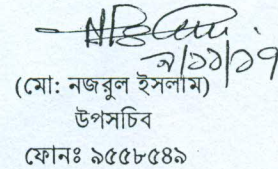 ৭/১১/১৭
(মো: নজরুল ইসলাম)
উপসচিব
ফোনঃ ৯৫৫৮৫৪৯